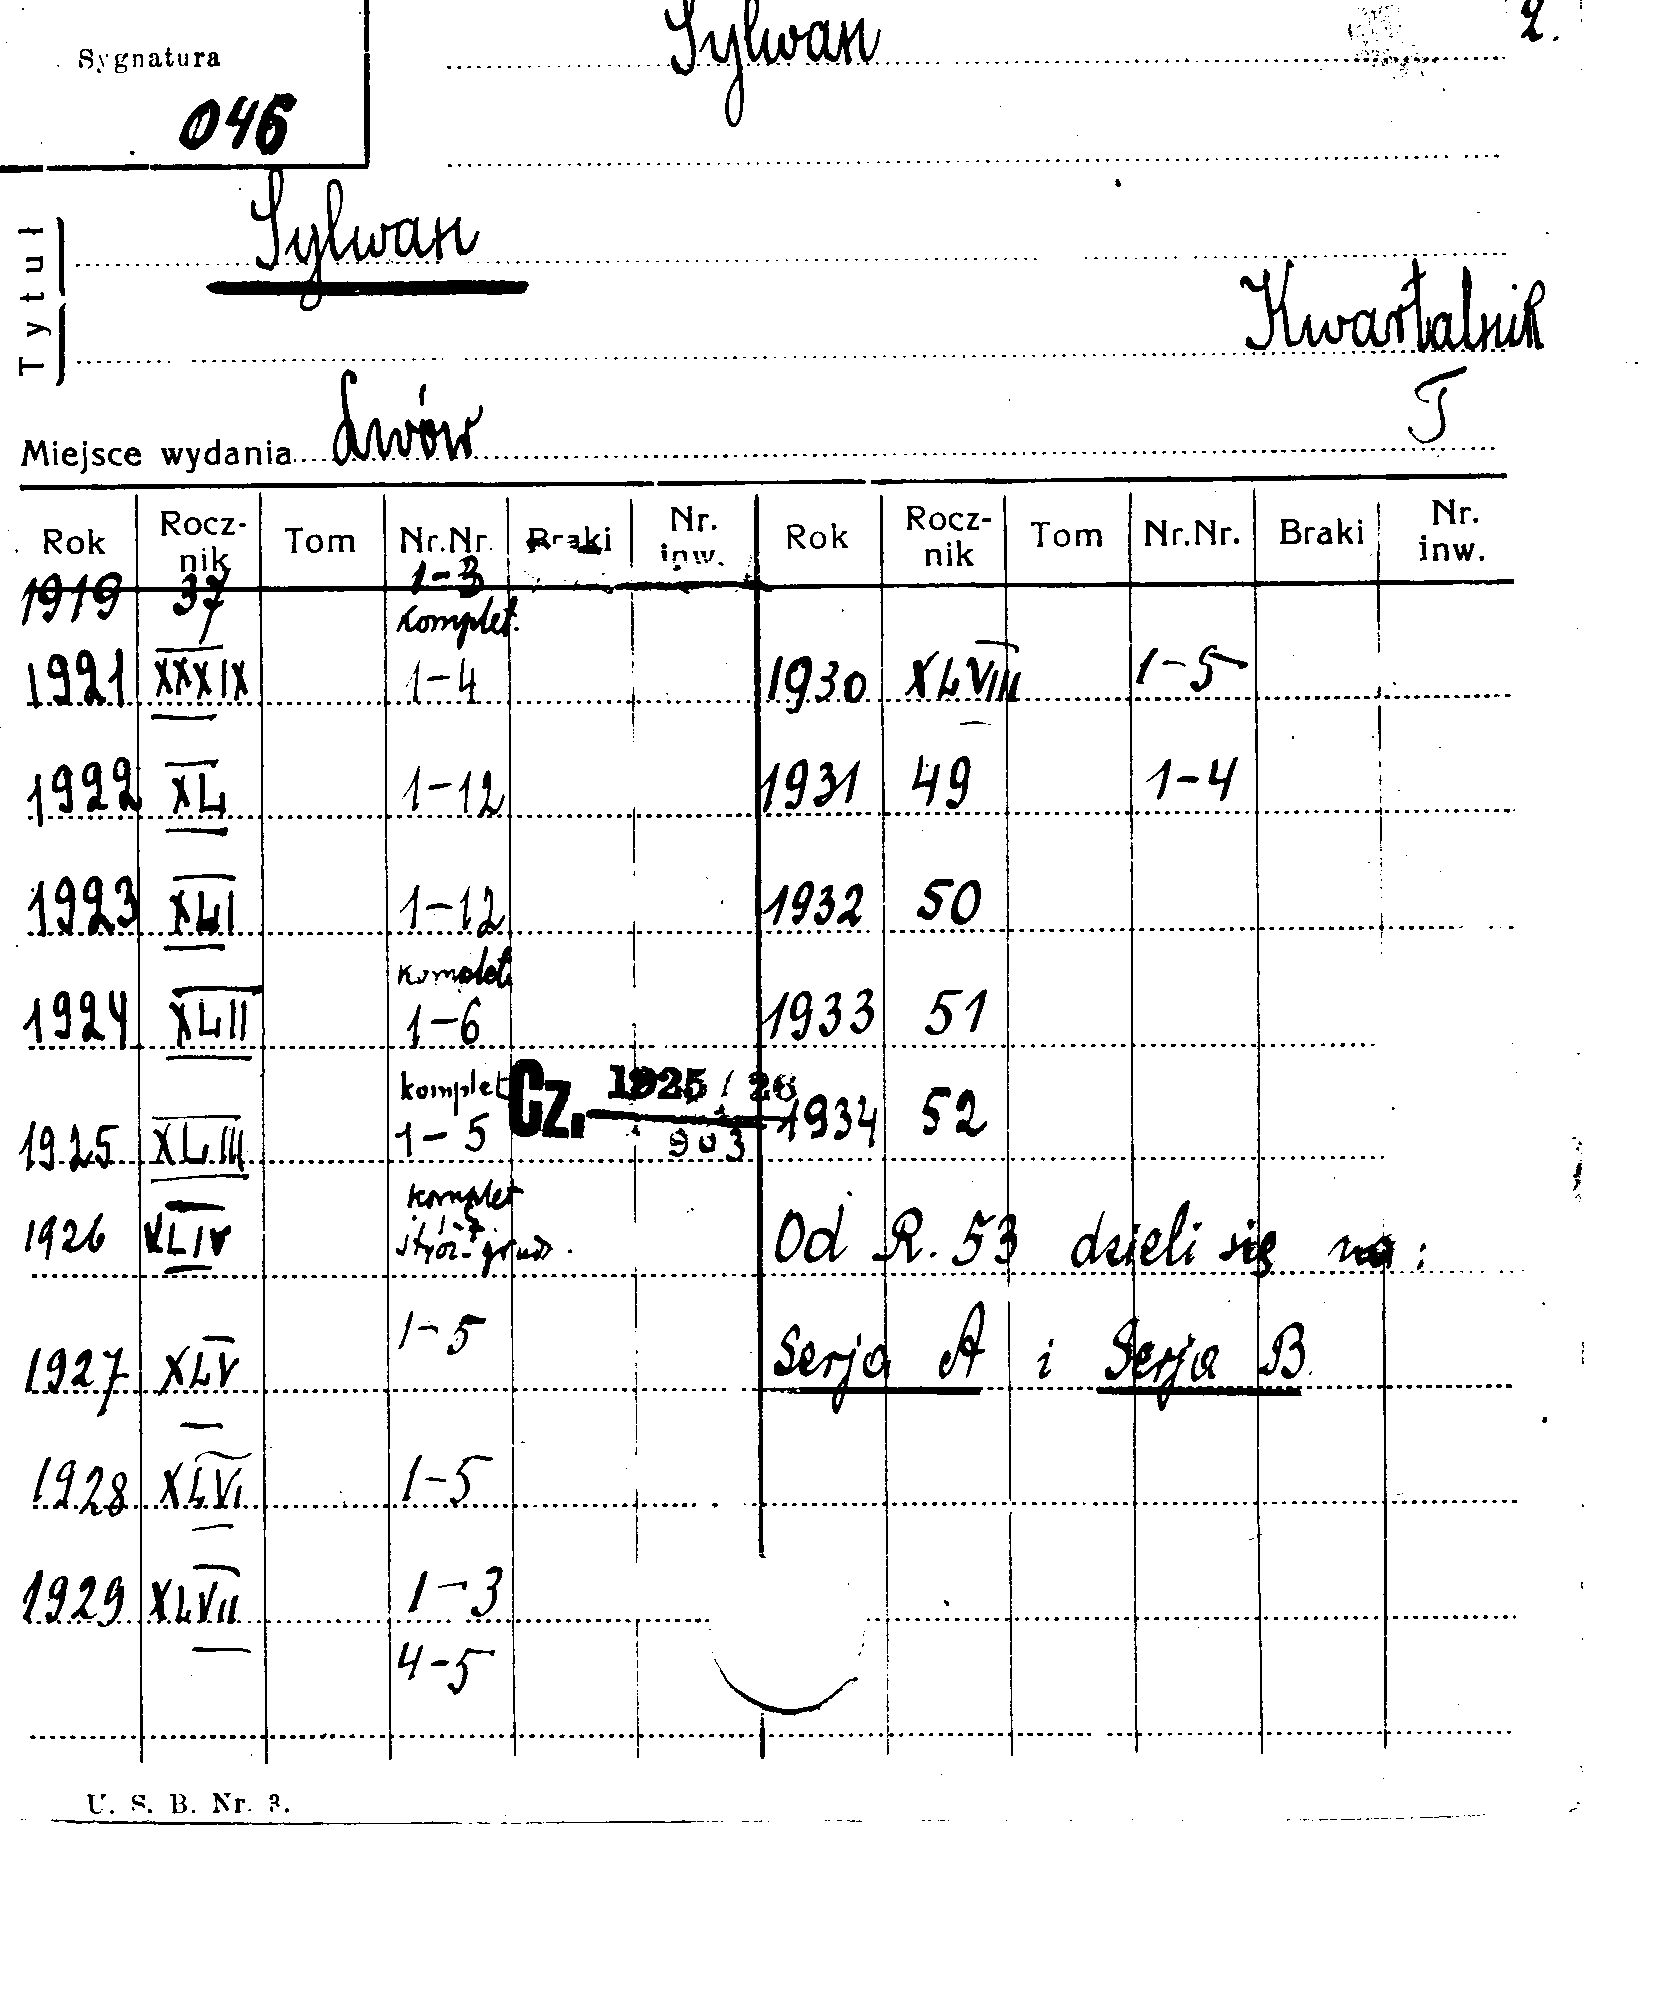 2.
Sygnatura
Sylwan
046
Tytuł
Sylwan
Kwartalnik
Miejsce wydania Lwów
T
Rok Rocz-nik Tom Nr.Nr. Braki Nr. inw. Rok Rocz-nik Tom Nr.Nr. Braki Nr. inw.
1919 37 1-3
komplet.
1921 XXXIX 1-4 1930 XLVIII 1-5
1922 XL 1-12 1931 49 1-4
1923 XLI 1-12 1932 50
komplet
1924 XLII 1-6 1933 51
komplet Cz. 1925/26
1925 XLIII 1-5 903 1934 52
komplet
1926 XLIV stycz.-grudz. Od R. 53 dzieli się na:
1927 XLV 1-5 Serja A i Serja B
1928 XLVI 1-5
1929 XLVII 1-3
4-5
U. S. B. Nr. 3.